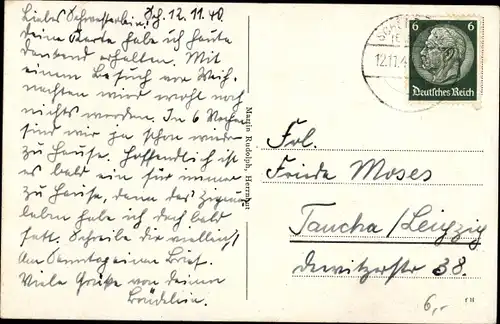 Liebes Schwesterlein. Sch. 12.11.40.
Deine Karte habe ich heute
dankend erhalten. Mit
einem Besuch vor Weih-
nachten wird wohl noch
nichts werden. In 6 Wochen
sind wir ja schon wieder
zu Hause. Hoffendlich ist
es bald ein für immer
zu Hause, denn das
leben habe ich doch bald
satt. Schreibe dir vielleicht
Am Sonntag einen Brief.
Viele Grüße von deinem
Brüderlein.
Martin Rudolph, Herrnhut
12.11.4
6 6
Deutsches Reich
Frl.
Frieda Moses
Taucha/Leipzig
Dewitzerstr 38.
6,-